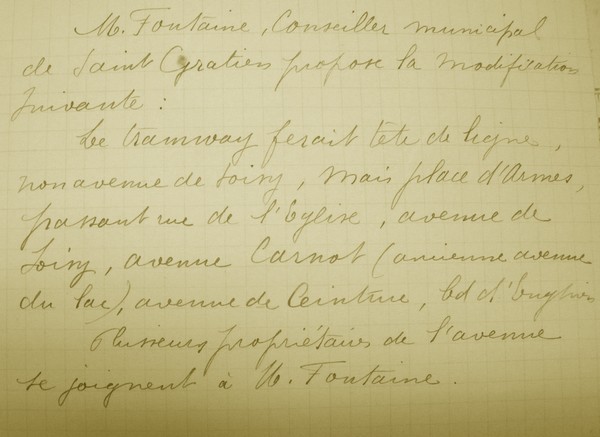 M. Fontaine, Conseiller municipal
de Saint Gratien propose la modification
suivante :
Le tramway ferait tête de ligne,
non avenue de Soisy, mais place d'Armes,
passant rue de l'Eglise, avenue de
Soisy, avenue Carnot (ancienne avenue
du lac), avenue de Ceinture, bd d'Enghien
Plusieurs propriétaires de l'avenue
se joignent à M. Fontaine.